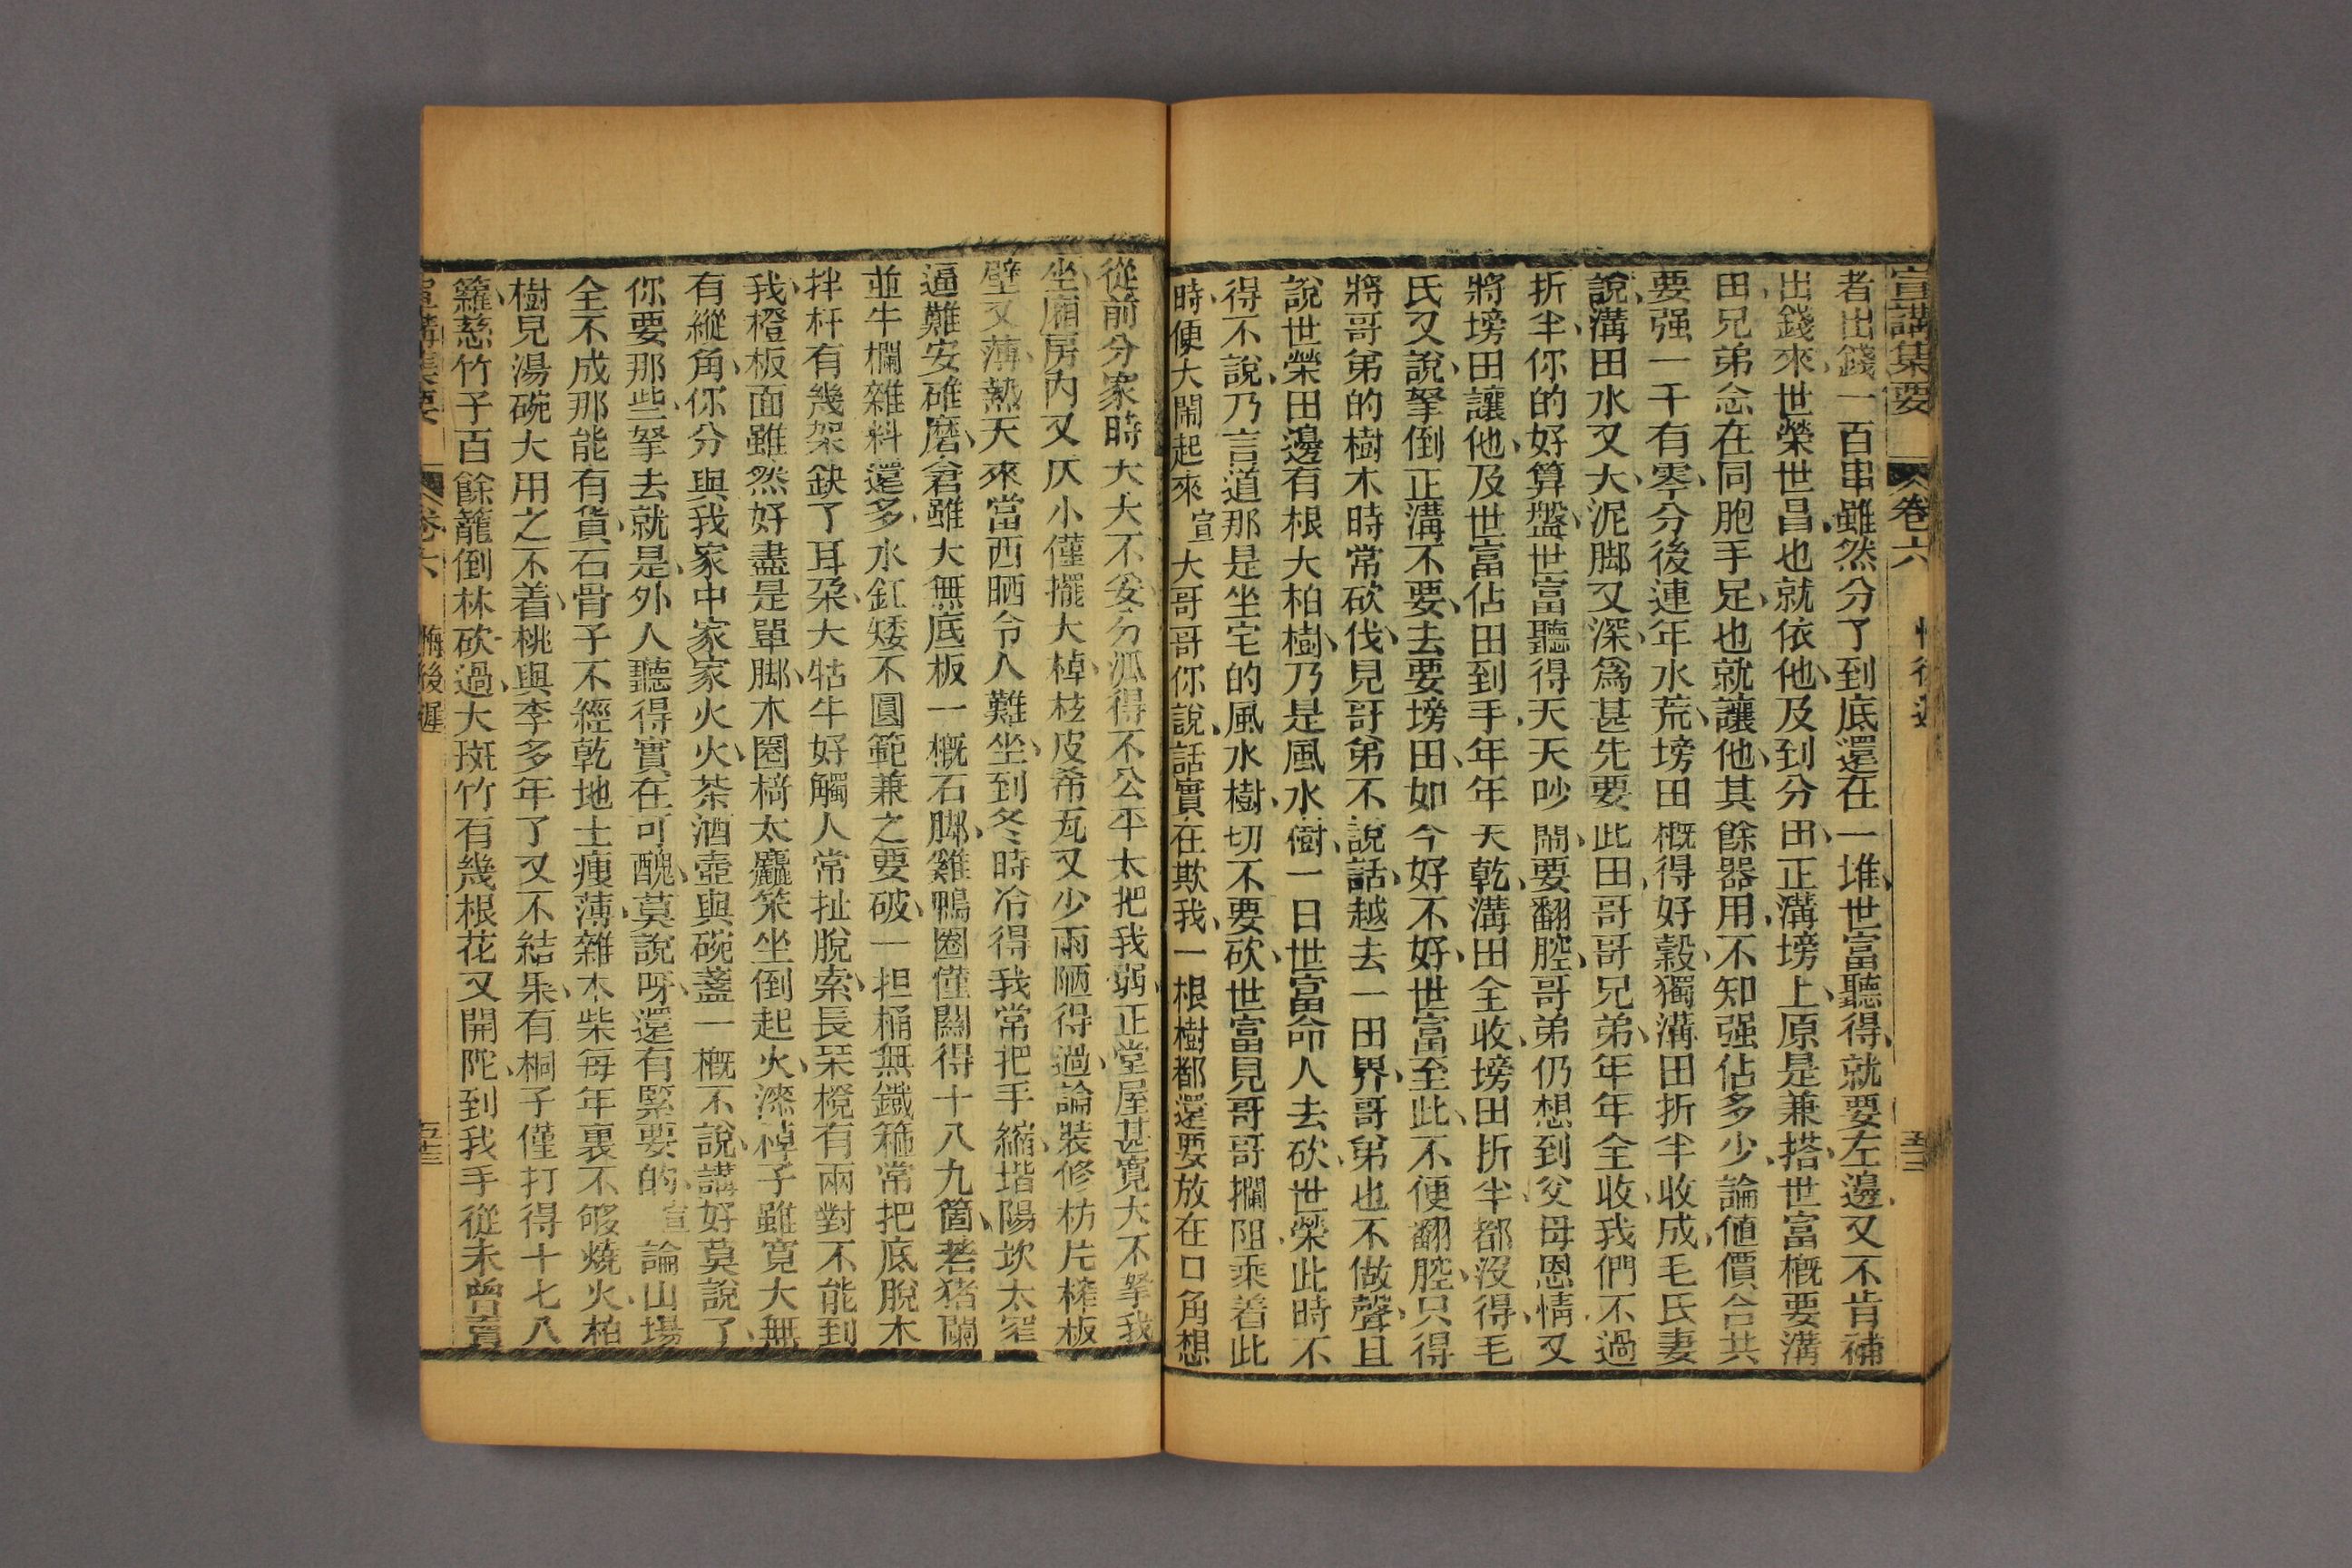 宣講集要 卷六 五十二
者出錢一百串雖然分了到底還在一堆世富聽得就要左邊又不肯補
出錢來世榮世昌也就依他及到分田正溝塝上原是兼搭世富概要溝
田兄弟念在同胞手足也就讓他其餘器用不知强佔多少論値價合共
要强一千有零分後連年水荒塝田概得好穀獨溝田折半收成毛氏妻
說溝田水又大泥脚又深爲甚先要此田哥哥兄弟年年全收我們不過
折半你的好算盤世富聽得天天吵鬧要翻腔哥弟仍想到父母恩情又
將塝田讓他及世富佔田到手年年天乾溝田全收塝田折半都沒得毛
氏又說拏倒正溝不要去要塝田如今好不好世富至此不便翻腔只得
將哥弟的樹木時常砍伐見哥弟不說話越去一田界哥弟也不做聲且
說世榮田邊有根大柏樹乃是風水樹一日世富命人去砍世榮此時不
得不說乃言道那是坐宅的風水樹切不要砍世富見哥哥攔阻乘着此
時便大鬧起來宣大哥哥你說話實在欺我一根樹都還要放在口角想
從前分家時大大不妥分派得不公平太把我弱正堂屋甚寬大不拏我
坐廂房內又仄小僅擺大棹枝皮希瓦又少雨陋得過論裝修枋片榨板
壁又薄熱天來當西晒令人難坐到冬時冷得我常把手縮堦陽坎太窄
逼難安碓磨倉雖大無底板一概石脚雞鴨圈僅關得十八九箇若猪闌
並牛欄雜料還多水缸矮不圓範兼之要破一担桶無鐵箍常把底脫木
拌杆有幾架缺了耳朶大牯牛好觸人常扯脫索長杗櫈有兩對不能到
我橙板面雖然好盡是單脚木圈椅太麤笨坐倒起火漆棹子雖寬大無
有縱角你分與我家中家家火火茶酒壺與碗盞一概不說講好莫說了
你要那些拏去就是外人聽得實在可醜莫說呀還有緊要的宣論山場
全不成那能有貨石骨子不經乾地土瘦薄雜木柴每年裏不彀燒火柏
樹兒湯碗大用之不着桃與李多年了又不結果有桐子僅打得十七八
籮慈竹子百餘籠倒林砍過大斑竹有幾根花又開陀到我手從未曾賣
宣講集要 卷六 悔後遲 五十三